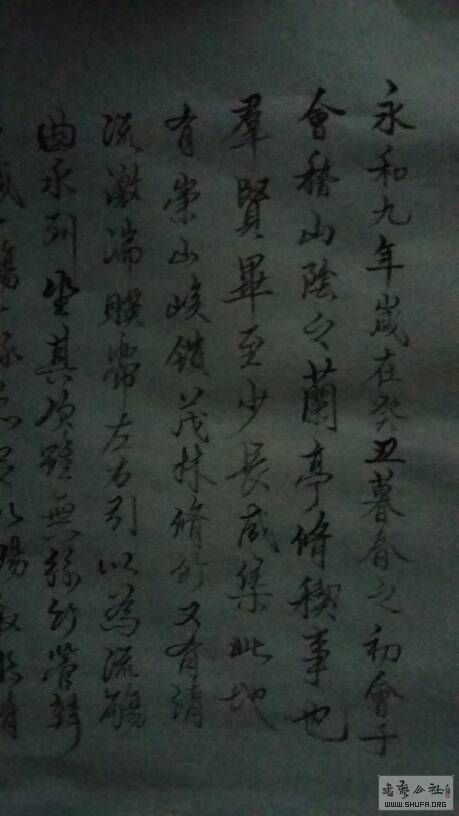 永和九年嵗在癸丑暮春之初會于
會稽山陰之蘭亭脩稧事也
羣賢畢至少長咸集此地
有崇山峻領茂林脩竹又有清
流激湍暎帶左右引以為流觴
曲水列坐其次雖無絲竹管弦
盛一觴一詠亦足以暢敘幽情
書藝公社
WWW.SHUFA.ORG